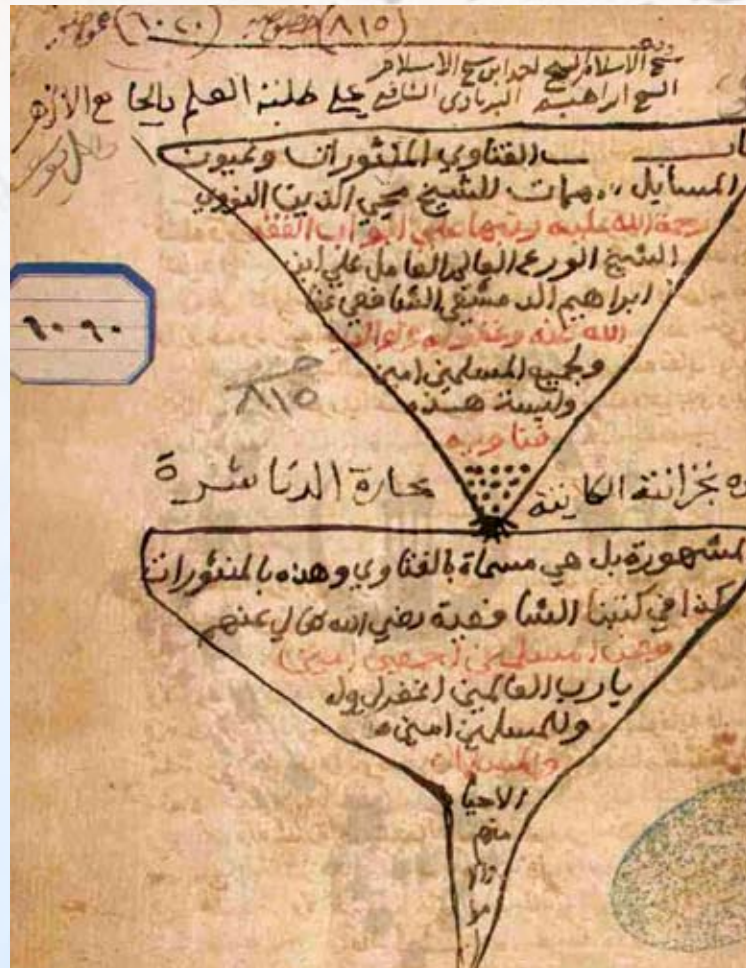 (٨١٥) خصوصيه (٦٠٢٠) عموميه
شيخ الاسلام الشيخ احمد ابن شيخ الاسلام
الشيخ ابراهيم البرماوى الشافعي على طلبة العلم بالجامع الازهر
ـاب الفتاوي المنثورات وعيون
المسايل المهمات للشيخ محيي الدين النووي
رحمة الله عليه رتبها علي ابواب الفقه
الشيخ الورع العالم العامل علي ابن
ابراهيم الدمشقي الشافعي عفا
الله عنه وغفر له ولوالديه
ولجميع المسلمين امين
وليسة هذه
٦٠٩٠
٨١٥
فتاويه
ـره بخزانته الكاينة بحارة الدناشرة
المشهورة بل هي مسماة بالفتاوي وهذه بالمنثورات
كذا في كتبنا الشافعية رضي الله تعالي عنهم
اجمعين امين
يارب العالمين اغفر لي وله
وللمسلمين امين
والمسلمات
الاحيا
منهم